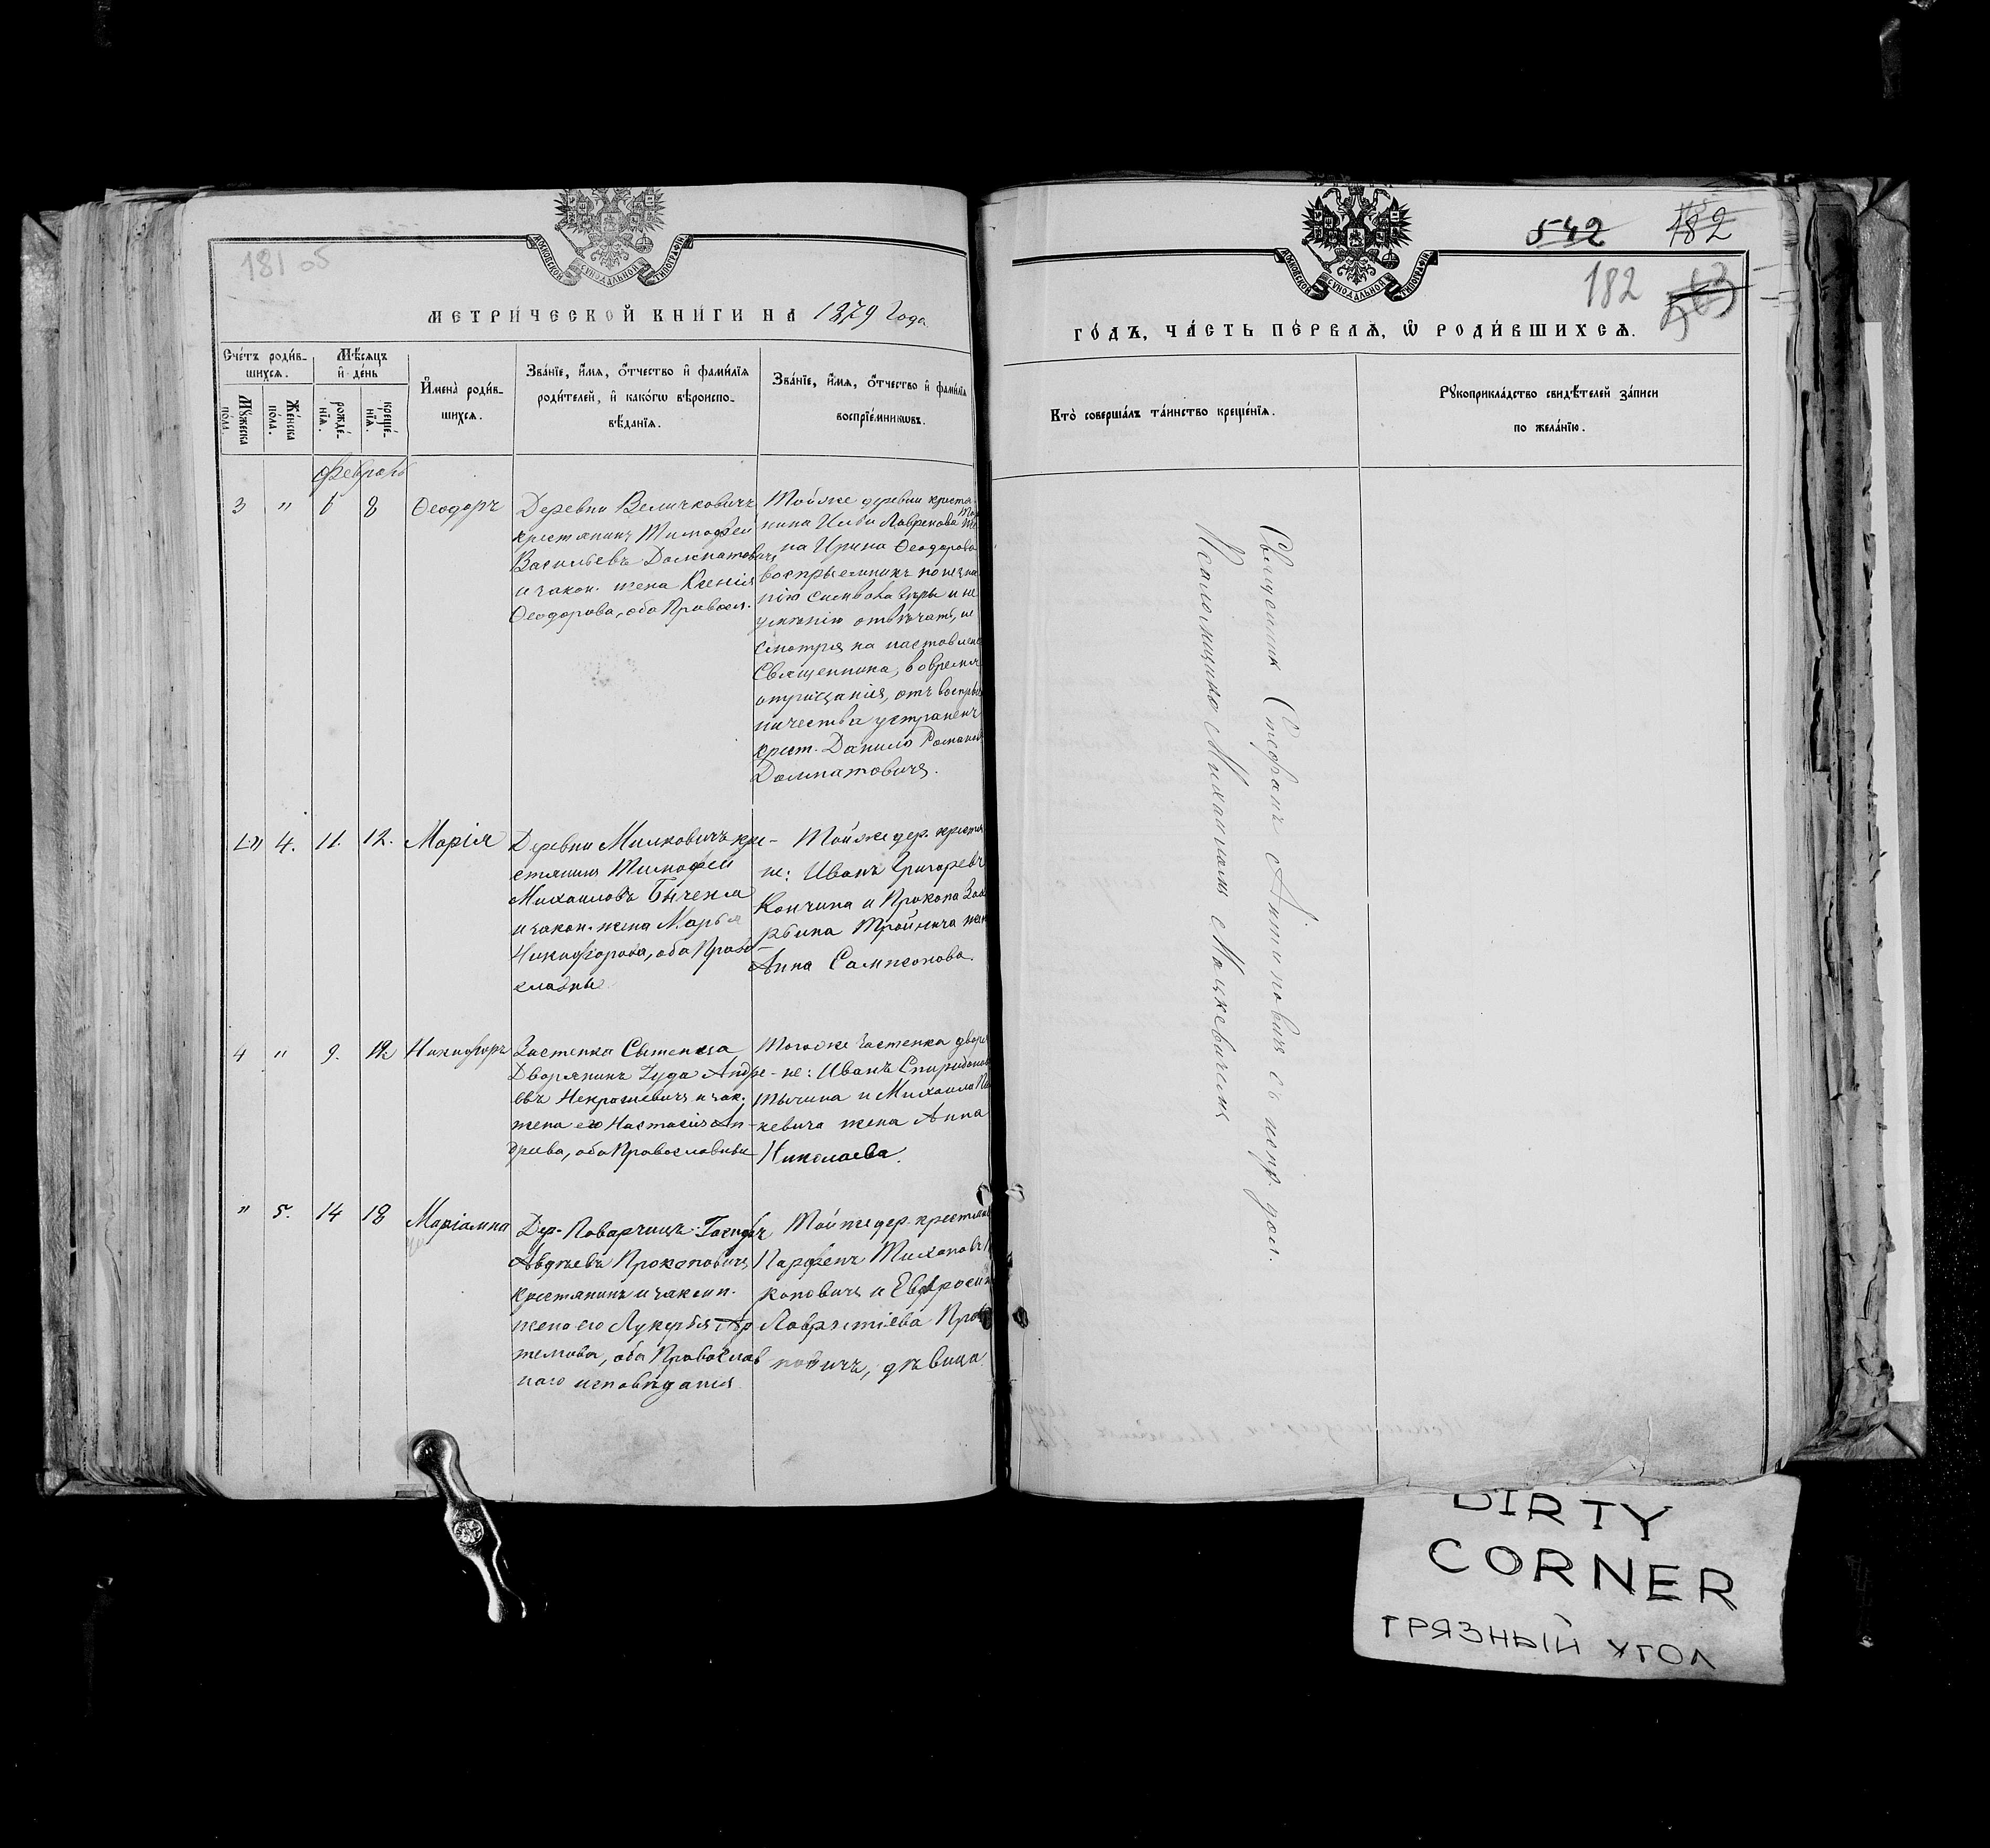 МОСКОВСКОЙ СѴНОДАЛЬНОЙ ТИПОГРАФІИ
181 05
МЕТРИ́ЧЕСКОЙ КНИ́ГИ НА 1879 Года
Сче́тъ роди́в-
шихсѧ.
Мѣ́сѧцъ
и҆ де́нь
Мꙋ́жеска
по́ла.
Же́нска
по́ла.
рожде́-
нїѧ.
креще́-
нїѧ.
И҆мена̀ роди́в-
шихсѧ.
Зва́нїе, и҆́мѧ, ѻ҆́тчество и҆ фами́лїѧ
роди́телей, и҆ како́гѡ вѣроиспо-
вѣ́данїѧ.
Зва́нїе, и҆́мѧ, ѻ҆́тчество и҆ фами́лїѧ
воспрїе́мникѡвъ.
Февраль
3 " 6 8 Ѳеодоръ
Деревни Величковичъ
крестянинъ Тимофей
Васильевъ Долматовичъ
и закон. жена Ксенія
Ѳеодорова, оба Правосл.
Тойже деревни крестя-
нина Ильи Лавренова
на Ирина Ѳеодорова
воспрыемникъ по незна
нію символа вѣры и не
умѣнію отвѣчать, не
смотря на наставлен
Священника, вовремя
отрицанія, отъ воспры
ничества устраненъ
крест. Данило Романов
Долматовичъ.
" 4. 11. 12. Марія
Деревни Милковичъ кре-
стянинъ Тимофей
Михаиловъ Быченя
и закон. жена Марья
Никифорова, оба Право-
славны
Тойже дер. крестя
не: Иванъ Григоревъ
Кончина и Прокопа Зах
рьина Тройнича жен
Анна Сампсонова.
4 " 9. 12 Никифоръ
Застенка Сытенца
Дворянинъ Іуда Андре-
евъ Некрашевичъ и зак.
жена его Настасія Ан-
дреева, оба Православны
Тогоже Застенка дворя
не: Иванъ Спиридонов
Тычина и Михаила
кевича жена Анна
Николаева.
" 5. 14 18 Маріамна
Дер. Поварчицъ
Авдѣевъ Прокоповичъ
крестянинъ и законн.
жена его Лукерья Ар
темова, оба Православ
наго исповѣданія
Тойже дер. крестяне
Парфенъ Тихоновъ
коповичъ и Евфросин
Лаврентіева Про
повичъ, дѣвица.
МОСКОВСКОЙ СѴНОДАЛЬНОЙ ТИПОГРАФІИ
542 182
182 563
ГО́ДЪ, ЧА́СТЬ ПЕ́РВАѦ, Ѽ РОДИ́ВШИХСѦ.
Кто̀ соверша́лъ та́инство креще́нїѧ.
Рꙋкоприкла́дство свидѣ́телей за́писи
по жела́нїю.
Священникъ Стефанъ Антиповичъ съ испр. дол.
Псаломщика Михаиломъ Мацкевичемъ
DIRTY
CORNER
ГРЯЗНЫЙ УГОЛ